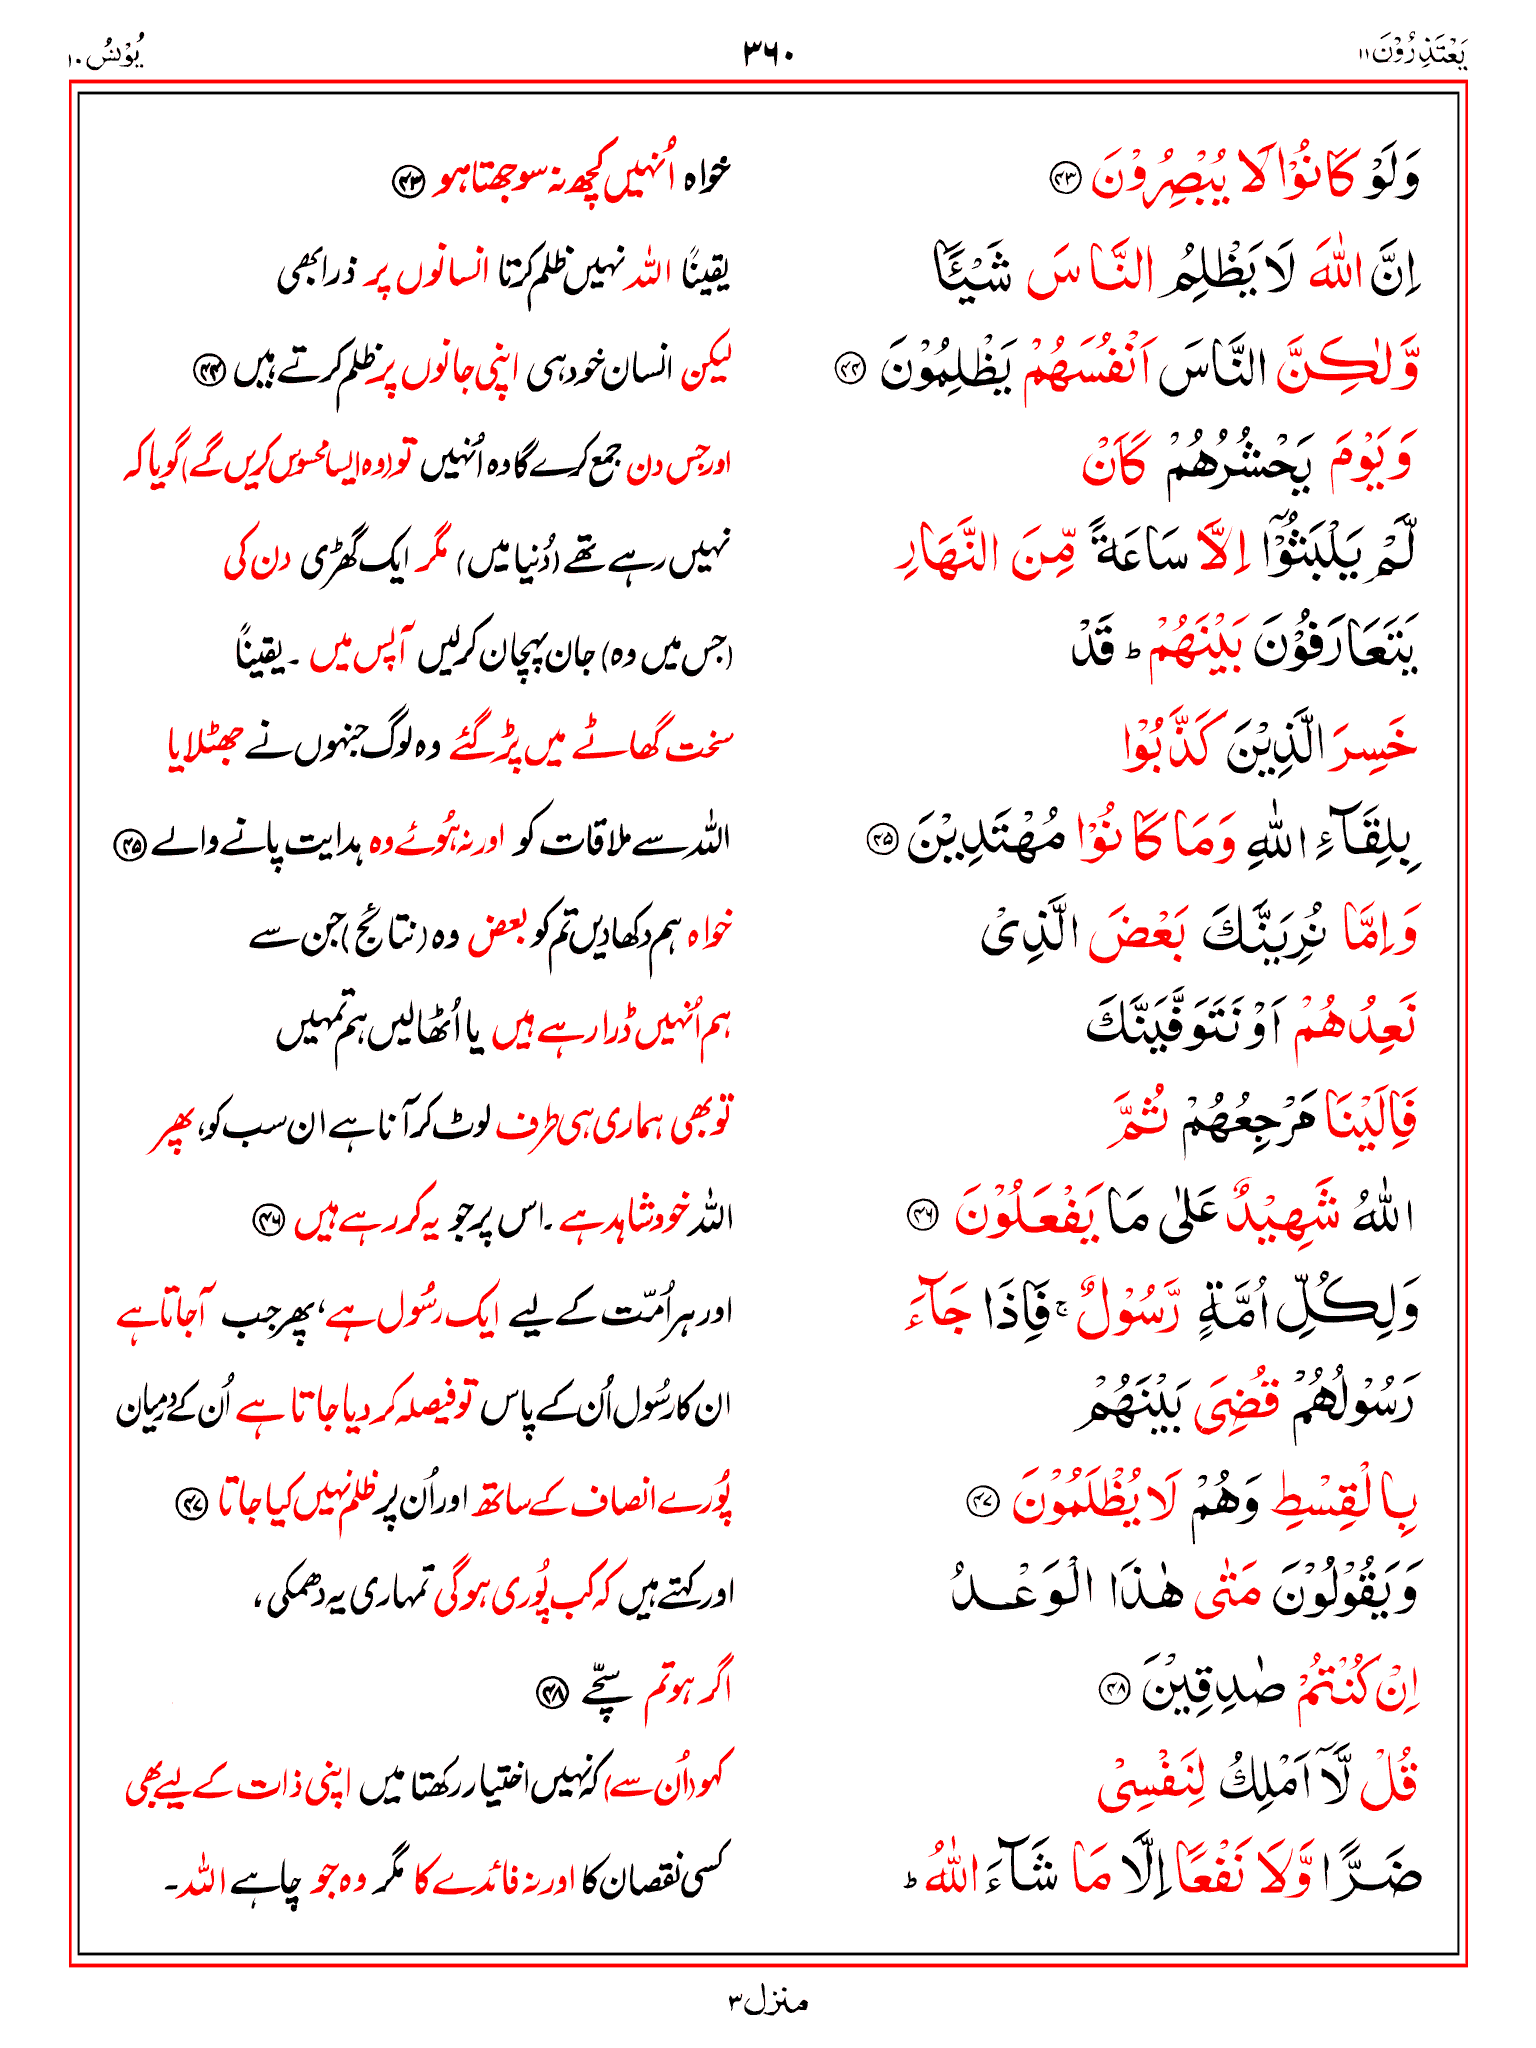 يَعْتَذِرُوْنَ ۱۱ ۳۶۰ يُوْنُسُ ۱۰
وَلَوْ كَانُوْا لَا يُبْصِرُوْنَ ۴۳ خواہ اُنہیں کچھ نہ سوجھتا ہو ۴۳
اِنَّ اللّٰهَ لَا يَظْلِمُ النَّاسَ شَيْـًٔا یقیناً اللہ نہیں ظلم کرتا انسانوں پر ذرا بھی
وَّلٰكِنَّ النَّاسَ اَنْفُسَهُمْ يَظْلِمُوْنَ ۴۴ لیکن انسان خود ہی اپنی جانوں پر ظلم کرتے ہیں ۴۴
وَيَوْمَ يَحْشُرُهُمْ كَاَنْ اور جس دن جمع کرے گا وہ اُنہیں تو (وہ ایسا محسوس کریں گے) گویا کہ
لَّمْ يَلْبَثُوْٓا اِلَّا سَاعَةً مِّنَ النَّهَارِ نہیں رہے تھے (دُنیا میں) مگر ایک گھڑی دن کی
يَتَعَارَفُوْنَ بَيْنَهُمْ ؕ قَدْ (جس میں وہ) جان پہچان کرلیں آپس میں ۔ یقیناً
خَسِرَ الَّذِيْنَ كَذَّبُوْا سخت گھاٹے میں پڑ گئے وہ لوگ جنہوں نے جھٹلایا
بِلِقَآءِ اللّٰهِ وَمَا كَانُوْا مُهْتَدِيْنَ ۴۵ اللہ سے ملاقات کو اور نہ ہُوئے وہ ہدایت پانے والے ۴۵
وَاِمَّا نُرِيَنَّكَ بَعْضَ الَّذِىْ خواہ ہم دکھا دیں تم کو بعض وہ (نتائج) جن سے
نَعِدُهُمْ اَوْ نَتَوَفَّيَنَّكَ ہم اُنہیں ڈرا رہے ہیں یا اُٹھا لیں ہم تمہیں
فَاِلَيْنَا مَرْجِعُهُمْ ثُمَّ تو بھی ہماری ہی طرف لوٹ کر آنا ہے ان سب کو، پھر
اللّٰهُ شَهِيْدٌ عَلٰى مَا يَفْعَلُوْنَ ۴۶ اللہ خود شاہد ہے ۔ اس پر جو یہ کر رہے ہیں ۴۶
وَلِكُلِّ اُمَّةٍ رَّسُوْلٌ ۚ فَاِذَا جَآءَ اور ہر اُمّت کے لیے ایک رسُول ہے، پھر جب آجاتا ہے
رَسُوْلُهُمْ قُضِىَ بَيْنَهُمْ ان کا رسُول اُن کے پاس تو فیصلہ کر دیا جاتا ہے اُن کے درمیان
بِالْقِسْطِ وَهُمْ لَا يُظْلَمُوْنَ ۴۷ پُورے انصاف کے ساتھ اور اُن پر ظلم نہیں کیا جاتا ۴۷
وَيَقُوْلُوْنَ مَتٰى هٰذَا الْوَعْدُ اور کہتے ہیں کہ کب پُوری ہوگی تمہاری یہ دھمکی،
اِنْ كُنْتُمْ صٰدِقِيْنَ ۴۸ اگر ہو تم سچّے ۴۸
قُلْ لَّاۤ اَمْلِكُ لِنَفْسِىْ کہو (اُن سے) کہ نہیں اختیار رکھتا میں اپنی ذات کے لیے بھی
ضَرًّا وَّلَا نَفْعًا اِلَّا مَا شَآءَ اللّٰهُ ؕ کسی نقصان کا اور نہ فائدے کا مگر وہ جو چاہے اللہ ۔
منزل ۳